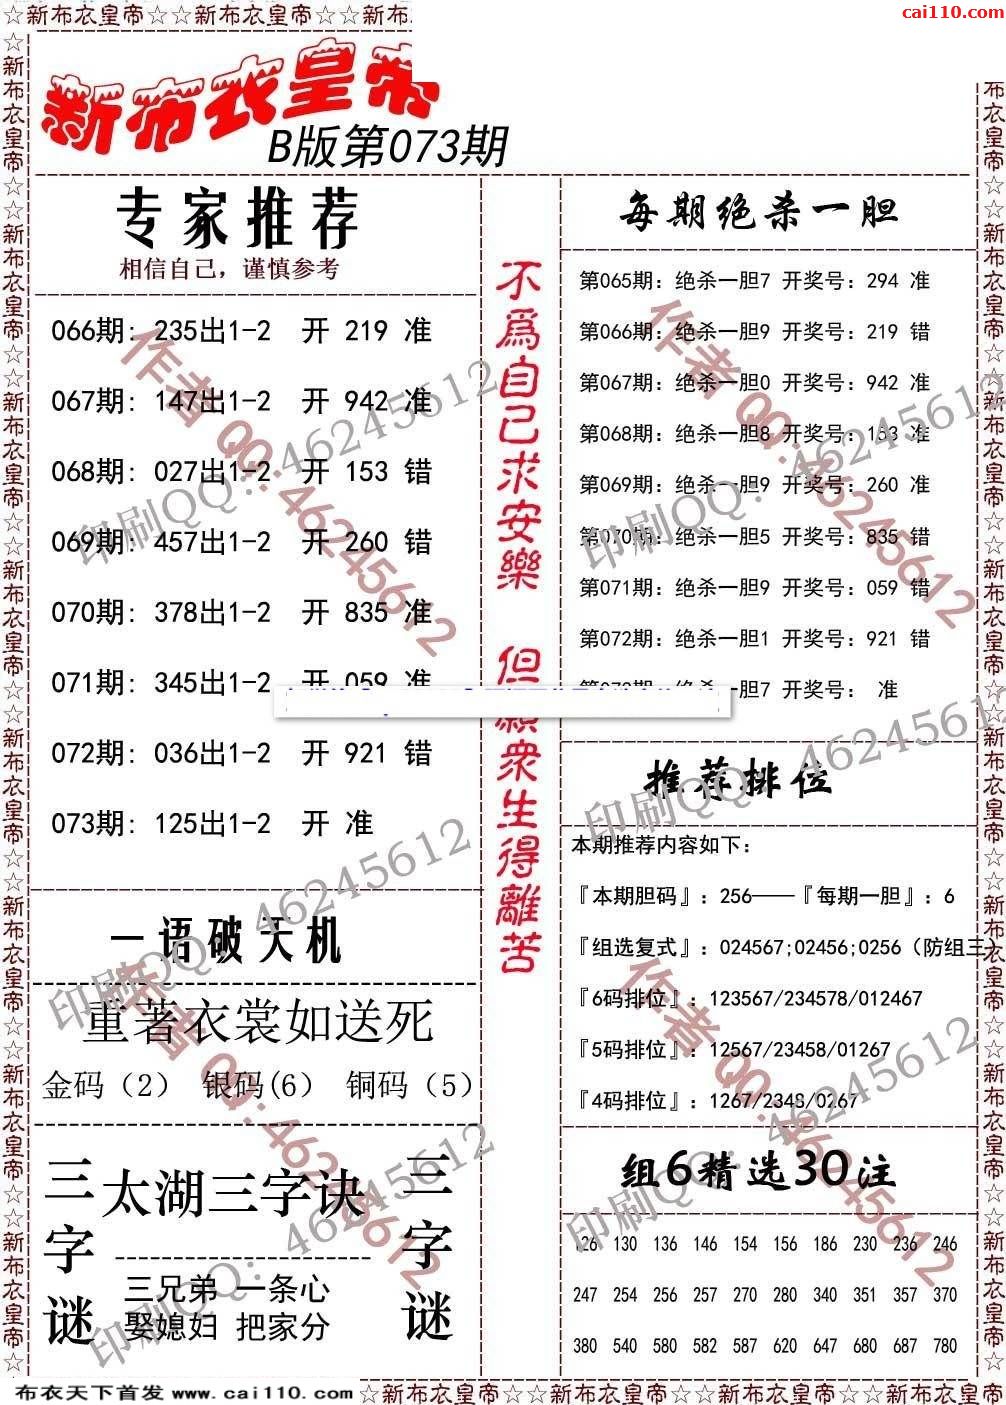 ☆新布衣皇帝☆☆新布衣皇帝☆☆新布衣
cai110.com
新布衣皇帝
B版第073期
专家推荐
相信自己，谨慎参考
066期: 235出1-2 开 219 准
067期: 147出1-2 开 942 准
068期: 027出1-2 开 153 错
069期: 457出1-2 开 260 错
070期: 378出1-2 开 835 准
071期: 345出1-2 开 059 准
072期: 036出1-2 开 921 错
073期: 125出1-2 开 准
一语破天机
重著衣裳如送死
金码（2） 银码(6） 铜码（5）
三字谜
太湖三字诀
三兄弟 一条心
娶媳妇 把家分
三字谜
不爲自己求安樂 但願衆生得離苦
每期绝杀一胆
第065期: 绝杀一胆7 开奖号: 294 准
第066期: 绝杀一胆9 开奖号: 219 错
第067期: 绝杀一胆0 开奖号: 942 准
第068期: 绝杀一胆8 开奖号: 153 准
第069期: 绝杀一胆9 开奖号: 260 准
第070期: 绝杀一胆5 开奖号: 835 错
第071期: 绝杀一胆9 开奖号: 059 错
第072期: 绝杀一胆1 开奖号: 921 错
第073期: 绝杀一胆7 开奖号: 准
推荐排位
本期推荐内容如下:
『本期胆码』: 256——『每期一胆』: 6
『组选复式』: 024567;02456;0256（防组三）
『6码排位』: 123567/234578/012467
『5码排位』: 12567/23458/01267
『4码排位』: 1267/2348/0267
组6精选30注
126 130 136 146 154 156 186 230 236 246
247 254 256 257 270 280 340 351 357 370
380 540 580 582 587 620 647 680 687 780
作者 QQ:46245612
印刷QQ: 46245612
作者 QQ:46245612
印刷QQ: 46245612
印刷QQ: 46245612
印刷QQ: 46245612
作者 QQ:46245612
印刷QQ: 46245612
作者 QQ:46245612
印刷QQ: 46245612
布衣天下首发 www.cai110.com
☆新布衣皇帝☆☆新布衣皇帝☆☆新布衣皇帝☆